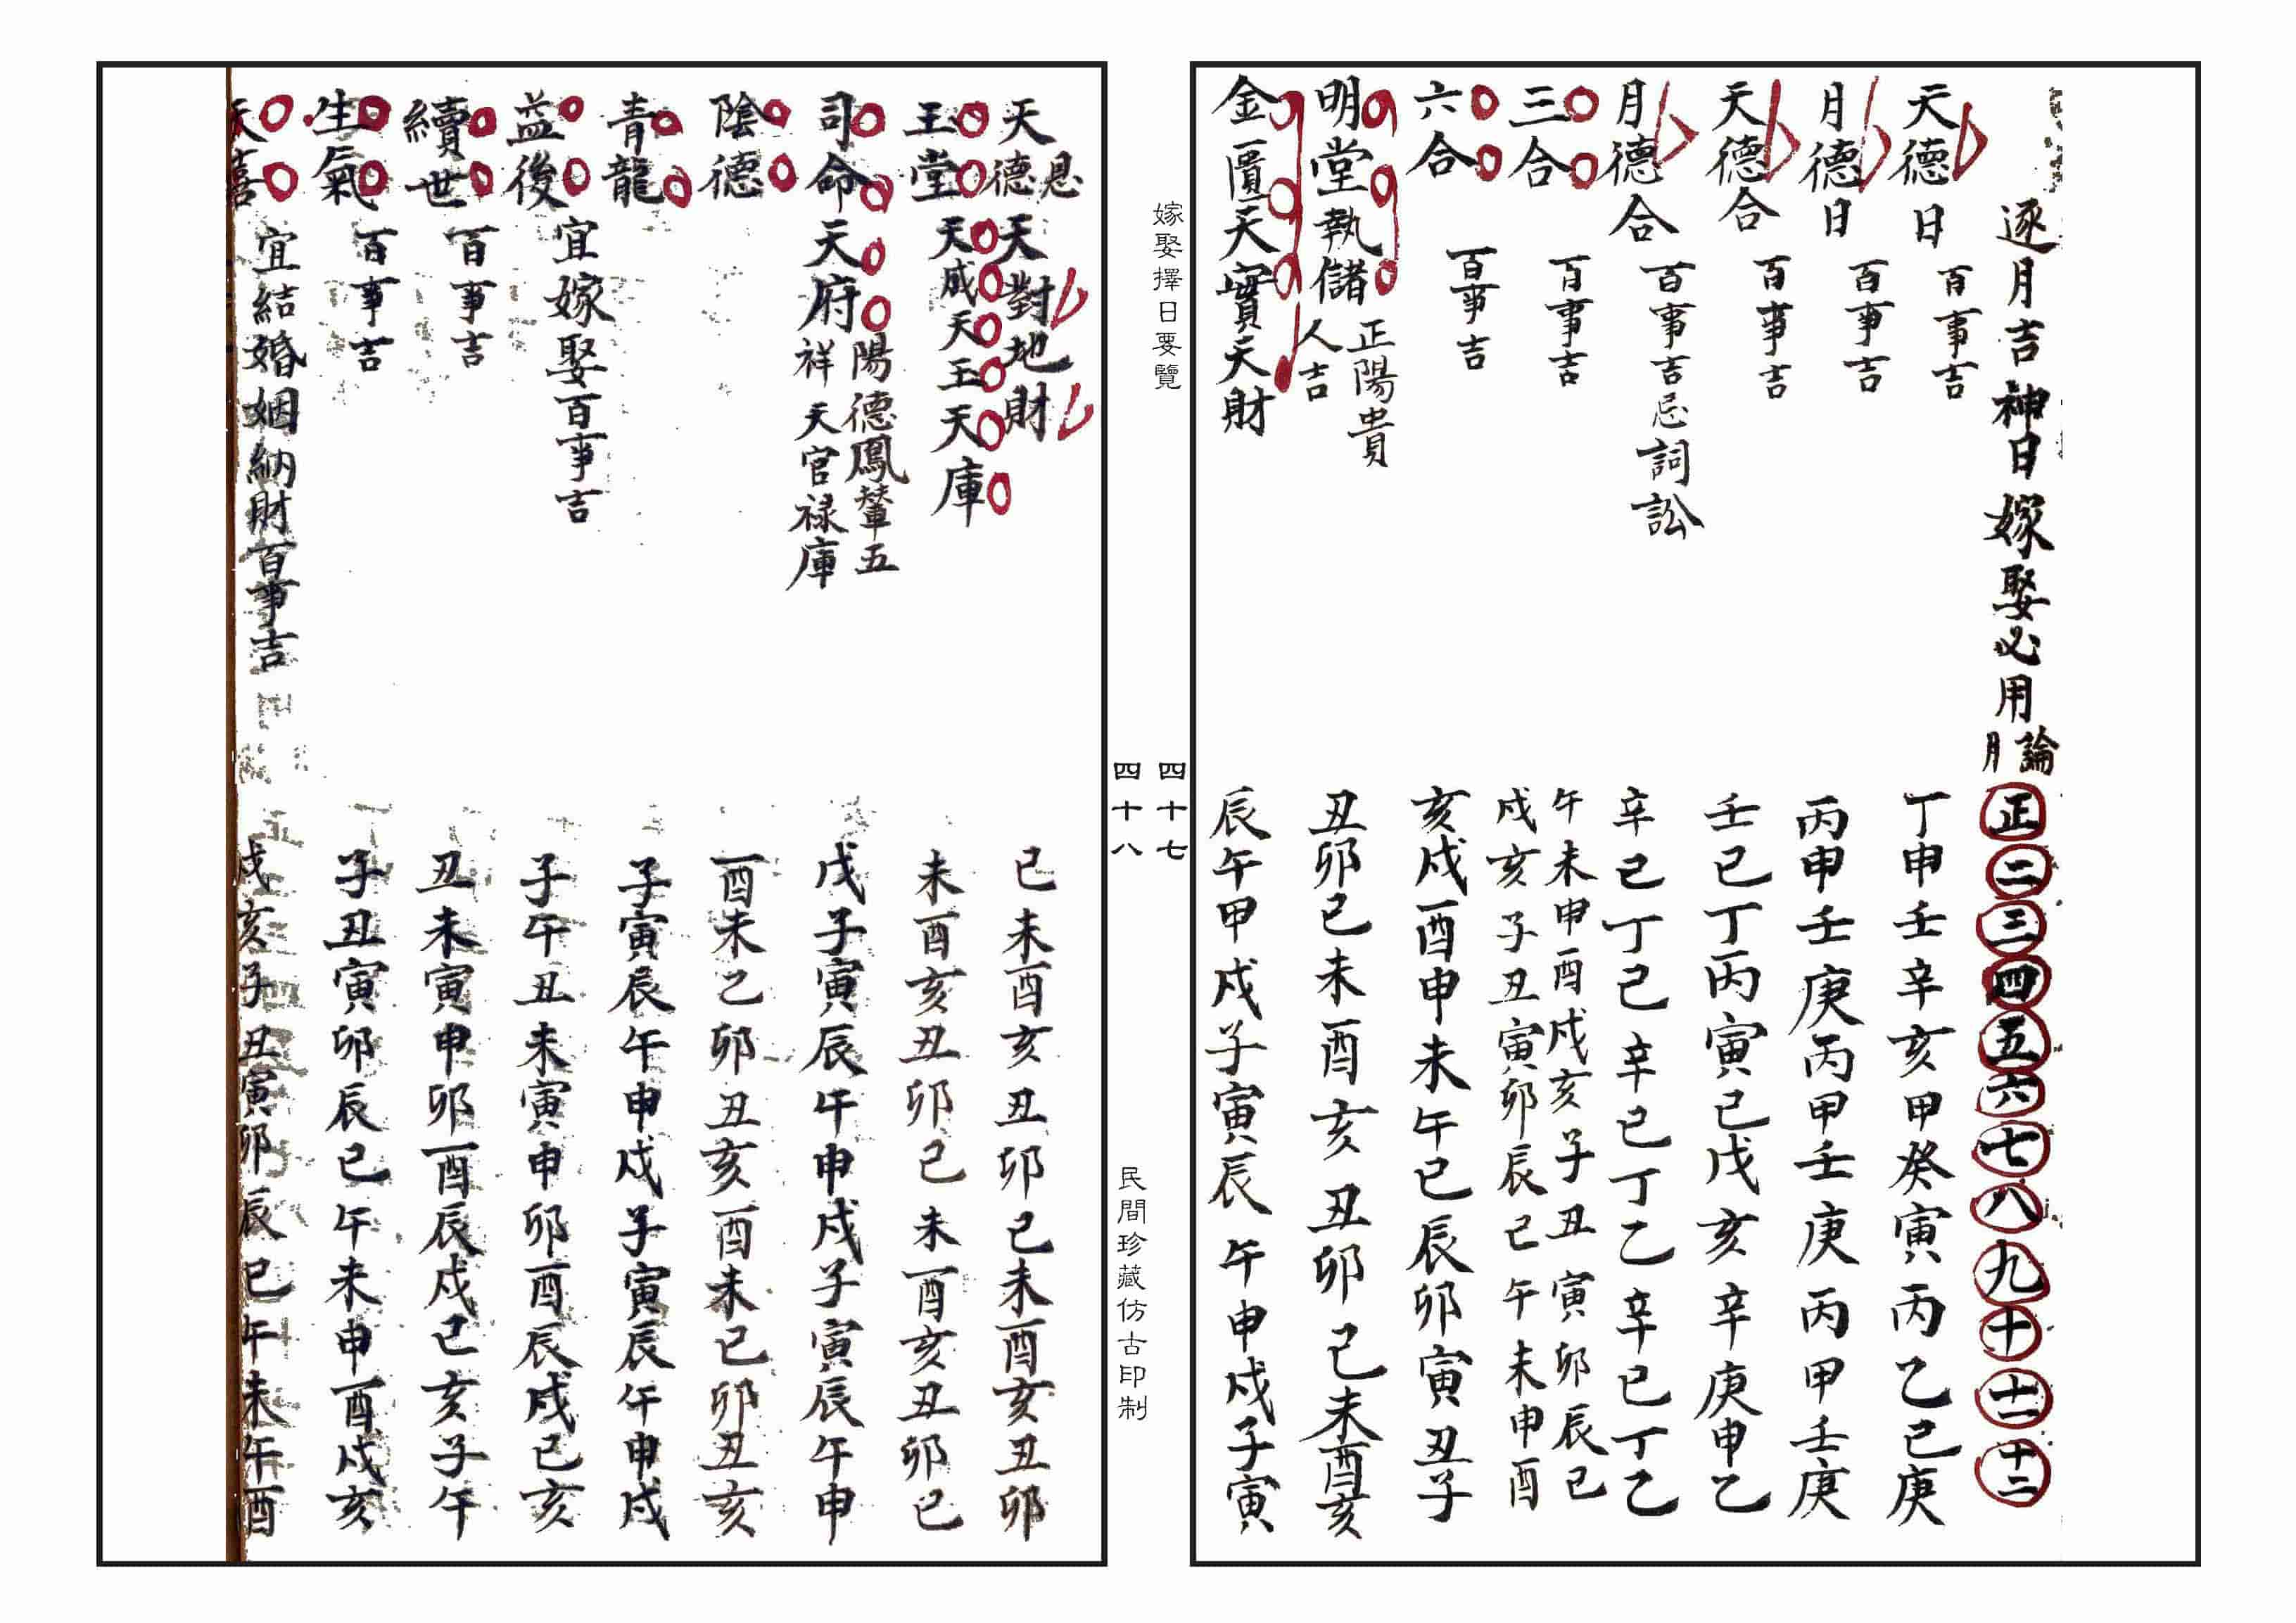 逐月吉神日嫁娶必用論月正二三四五六七八九十十一十二
天德日百事吉丁申壬辛亥甲癸寅丙乙巳庚
月德日百事吉丙申壬庚丙甲壬庚丙甲壬庚
天德合百事吉壬巳丁丙寅己戊亥辛庚申乙
月德合百事吉忌詞訟辛己丁己辛己丁乙辛己丁乙
三合百事吉
午未申酉戌亥子丑寅卯辰巳
戌亥子丑寅卯辰巳午未申酉
六合百事吉亥戌酉申未午巳辰卯寅丑子
明堂執儲
正陽貴
人吉
丑卯巳未酉亥丑卯巳未酉亥
金匱天寶天財辰午甲戌子寅辰午申戌子寅
嫁娶擇日要覽
四十七
四十八
民間珍藏仿古印制
天德恩天對地財巳未酉亥丑卯巳未酉亥丑卯
玉堂天成天玉天庫未酉亥丑卯巳未酉亥丑卯巳
司命天府
陽德鳳輦五
祥天官禄庫
戌子寅辰午申戌子寅辰午申
陰德酉未乙卯丑亥酉未巳卯丑亥
青龍子寅辰午申戌子寅辰午申戌
益後宜嫁娶百事吉子午丑未寅申卯酉辰戌巳亥
續世百事吉丑未寅申卯酉辰戌巳亥子午
生氣百事吉子丑寅卯辰巳午未申酉戌亥
天喜宜結婚姻納財百事吉戌亥子丑寅卯辰巳午未午酉